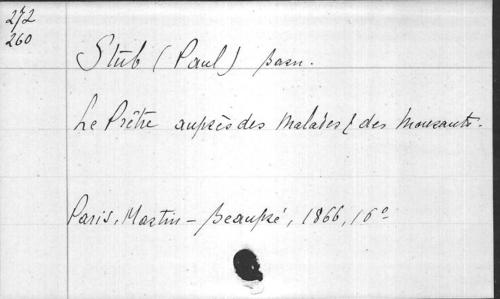 272
260
Stub (Paul) barn.
Le Prêtre auprès des Malades & des Mourants.
Paris, Martin-Beaupré, 1866, 16º